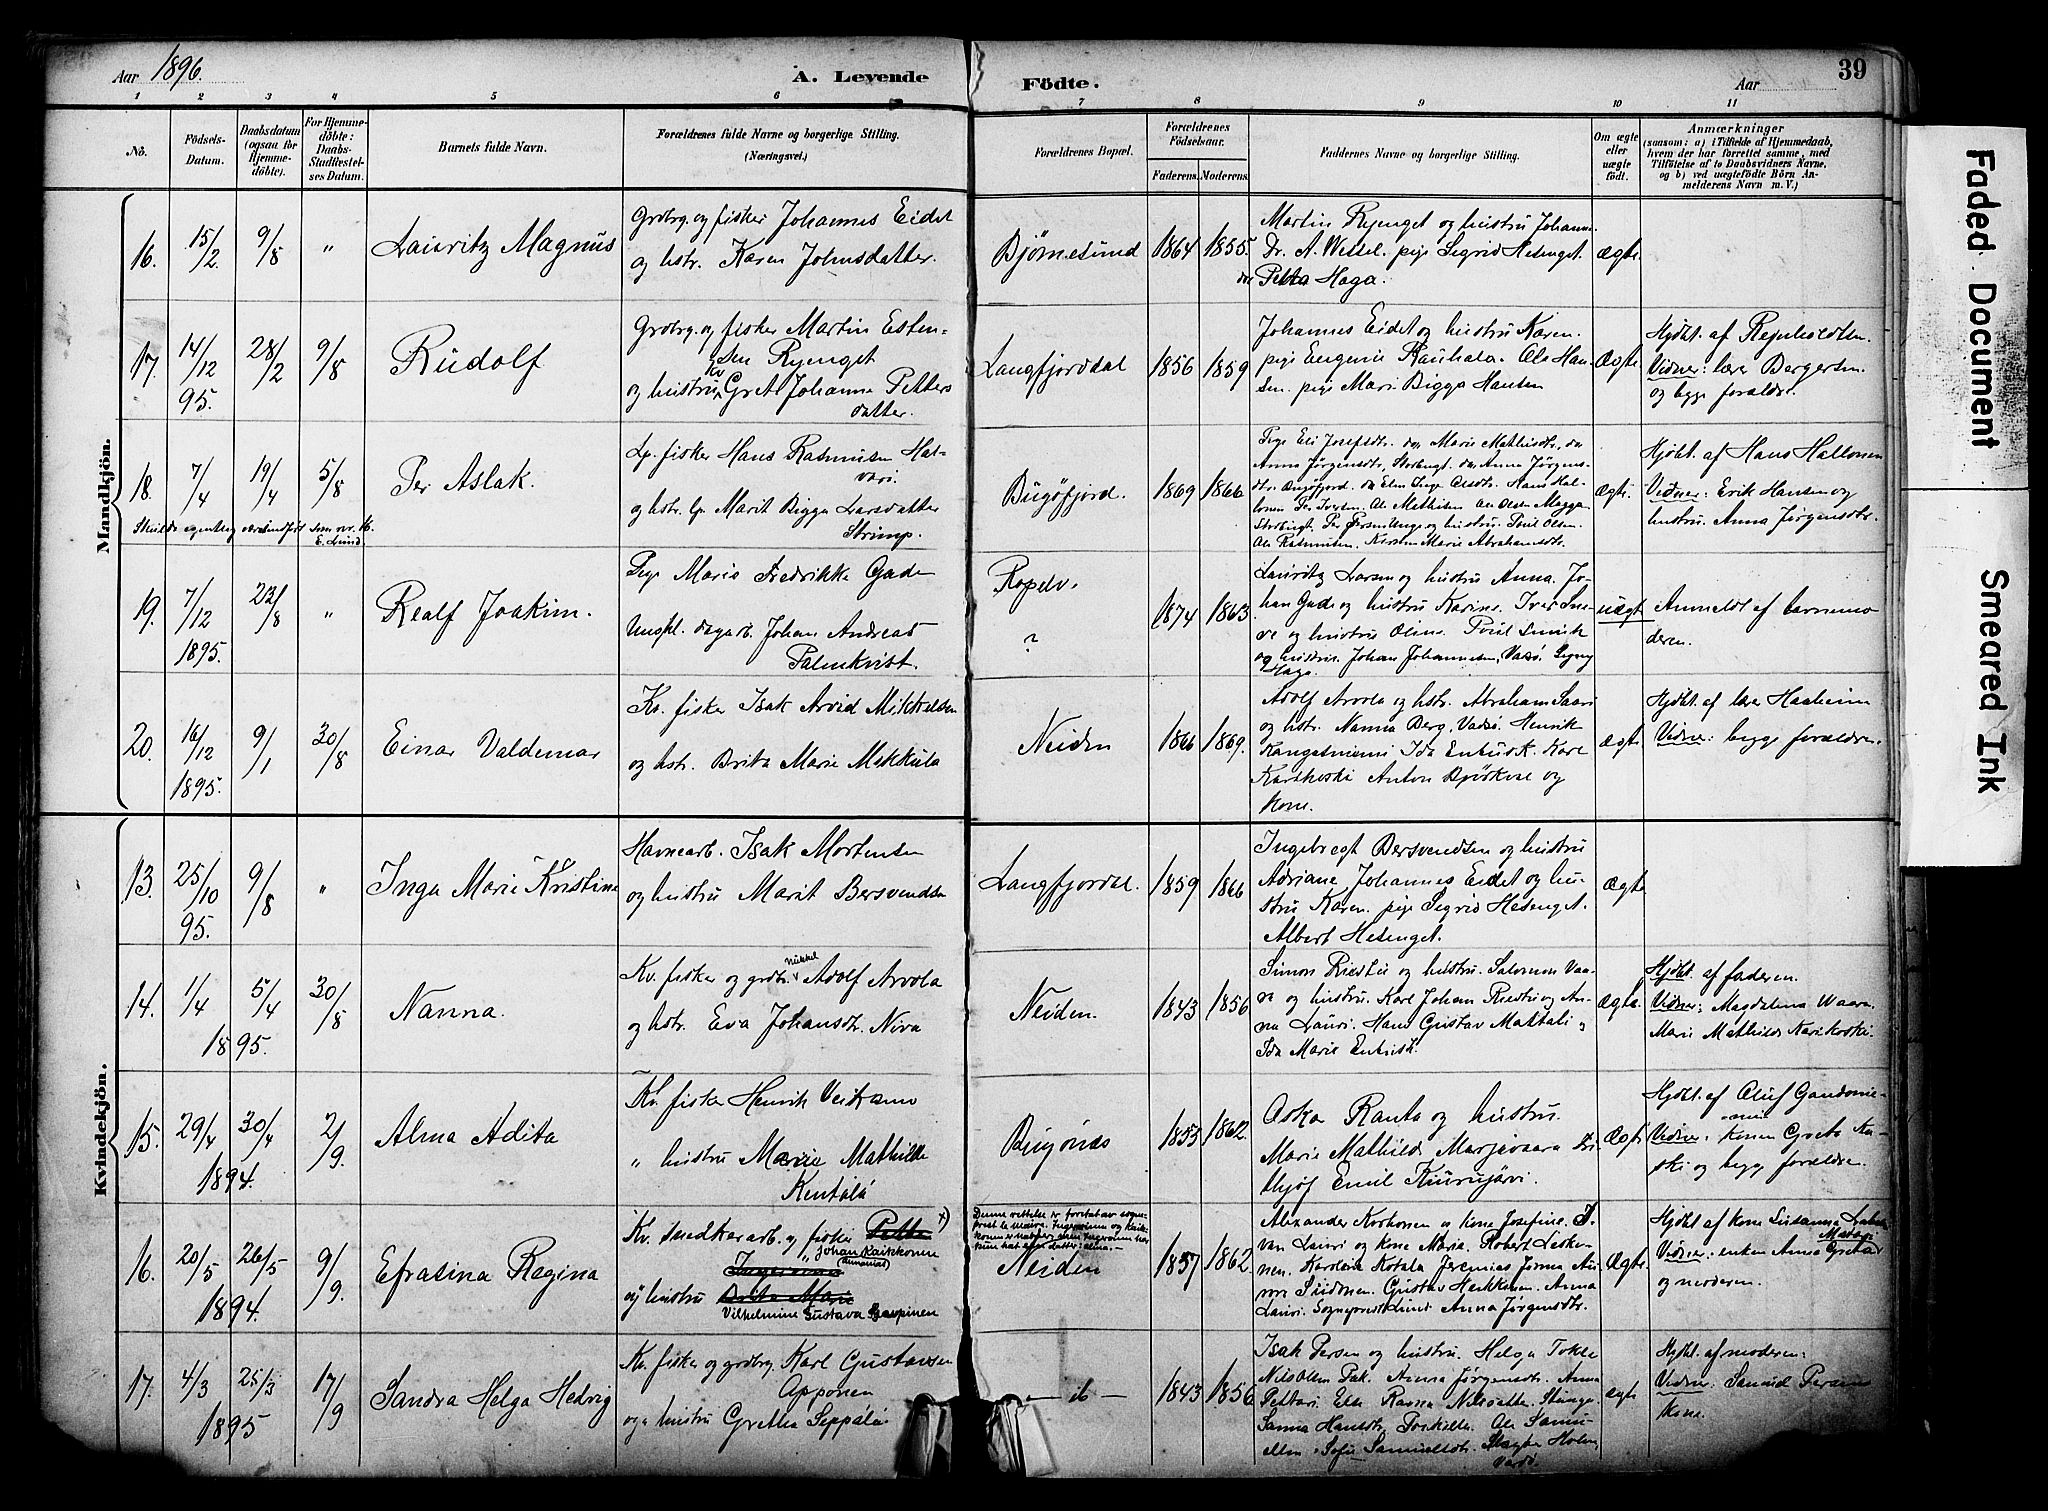 Aar 1896.
A. Levende
Födte.
Aar
39
1 2 3 4 5 6 7 8 9 10 11
No.
Födsels-
Datum.
Daabsdatum
(ogsaa for
Hjemme-
döbte).
For Hjemme-
döbte:
Daabs-
Stadfæstel-
ses Datum.
Barnets fulde Navn.
Forældrenes fulde Navne og borgerlige Stilling.
(Næringsvei.)
Forældrenes Bopæl.
Forældrenes
Födselsaar.
Faderens. Moderens.
Faddernes Navne og borgerlige Stilling.
Om ægte
eller
uægte
födt.
Anmærkninger
(saasom: a) i Tilfælde af Hjemmedaab,
hvem der har forrettet samme, med
Tilföielse af to Daabsvidners Navne,
og b) ved uægtefödte Börn An-
melderens Navn m. V.)
Mandkjön.
16. 15/2 9/8 " Lauritz Magnus
Grdbrg. og fisker Johannes Eidet
og hstr. Karen Johnsdatter.
Bjørnesund 1864 1855.
Martin Ryenget og hustru Johanne
Dr. A. Wessel. pige Sigrid Hesenget.
Petra Haga.
Ægte
17. 14/12 95. 28/2 9/8 Rudolf
Grdbrg. og fisker Martin Esten-
sen Ryenget
og hustru Gret Johanna Petters
datter.
Langfjorddal 1856 1859
Johannes Eidet og hustru Karen.
pige Eugenie Rauhala. Ole Han-
sen. pige Mari Bigga Hansen
Ægte
Hjdbt. af Reinholdtsen.
Vidner: lærer Bergersen
og begge forældre.
18. 7/4 19/4 5/8 Per Aslak.
Skulde egentlig være indført som nr. 16.
E. Lund.
Lp. fisker Hans Rasmusen Hal-
vari.
og hstr. Marit Bigga Larsdatter
Strimp.
Bugöfjord. 1869 1866
Pige Eli Josefsdtr. do. Marie Mathisdtr, do
Anna Jørgensdtr, Storbugt. do. Anna Jørgens-
dtr. Bugöfjord. do Elen Inga Olsdtr. Hans Hal-
lonen Per Iversen. Ole Mathisen Ole Olsen Magga
Ole Rasmusen. Kirsten Marie Abrahamsdtr.
Ægte.
Hjdbt. af Hans Hallonen
Vidner: Erik Hansen og
hustru Anna Jørgensdtr.
19. 7/12 1895. 23/8 " Realf Joakim.
Pige Marie Fredrikke Gade
Ungkl. dagarb. Johan Andreas
Palmkvist.
Ropelv.
?
1874 1863
Lauritz Larsen og hustru Anna. Jo-
han Gade og hustru Karine. Iver Sne-
ve og hustru Oline. Poul
og hustru. Johan Johannesen, Vadsö. Signy
Haga.
uægt.
Anmeldt af barnemo
deren.
20. 16/12 1895. 9/1 30/8 Einar Valdemar
Kv. fisker Isak Arvid Mikkelsen
og hstr. Brita Marie Mikkula
Neiden 1866 1869.
Adolf Arvola og hstr. Abraham Saari
og hstr. Nanna Berg, Vadsö. Henrik
Kangasniemi Ida Enbusk. Karl
Karikoski Anton Björkne og
kone.
Ægte
Hjdbt. af lærer Haaheim
Vidner: begge forældre.
Kvindekjön.
13. 25/10 95. 9/8 " Inga Marie Kristine
Havnearb. Isak Mortensen
og hustru Marit Bersvendsen
Langfjordal. 1859 1866
Ingebregt Bersvendsen og hustru
Adriane Johannes Eidet og hu-
stru Karen. pige Sigrid Hesenget.
Albert Hesenget.
Ægte
14. 1/4 5/4 1895. 30/8 Nanna.
Kv. fisker og grdbr. Mikkel Adolf Arvola
og hstr. Eva Johansdtr. Niva
Neiden. 1843 1856
Simon Riesti og hustru. Salomon Vaa-
ra og hustru. Karl Johan Riesti og An-
na Lauri. Hans Gustav Mattali og
Ida Marie Enbusk.
Ægte
Hjdbt. af faderen.
Vidner: Magdalena Waara
Marie Mathilde Karikoski.
15. 29/4 30/4 1894. 2/9. Alma Adita
Kv. fisker Henrik
" hustru Marie Mathilde
Kentälä
Bugönes 1853 1862.
Oskar Ranta og hustru.
Marie Mathilde Marjavaara Fri-
thjof Emil Kiurujärvi.
Ægte
Hjdbt. af Oluf
Vidner: konen Greta
og begge forældre.
16. 20/5 26/5 1894. 9/9. Efrasina Regina
Kv. smedkar arb. og fisker Pette x)
" Johan Kaikkonen
(Ananias)
og hustru Brita Marie
Vilhelmine Gustava
Denne rettelse er foretat av sogne-
prest
Neiden 1857 1862.
Alexander Korhonen og kone Josefine. I-
van Lauri og kone Maria. Robert Leske-
nen. Karolina Kotala Jeremias
Gustav Heikkinen. Anna
Lauri. Sogneprest Lund Anna Jørgensdtr.
Ægte
Hjdbt. af kone Susanna
Vidner: enken Anna Greta
og moderen.
17. 4/3 25/3 1895 17/9 Sandra Helga Hedvig
Kv. fisker og grdbrg. Karl Gustavsen
Apponen
og hustru Gretha Seppälä
— ib — 1843 1856
Isak Persen og hustru. Helga Tokle
Nils Olsen Pak. Anna Jørgensdtr. Anna
Pettari Else Ravna
Sanna Hansdtr. Ole Samu-
elsen. Sofie Samuelsdtr.
Vardö.
ægte
Hjdbt. af moderen:
Vidner: Samuel Persen
kone.
Faded Document
Smeared Ink